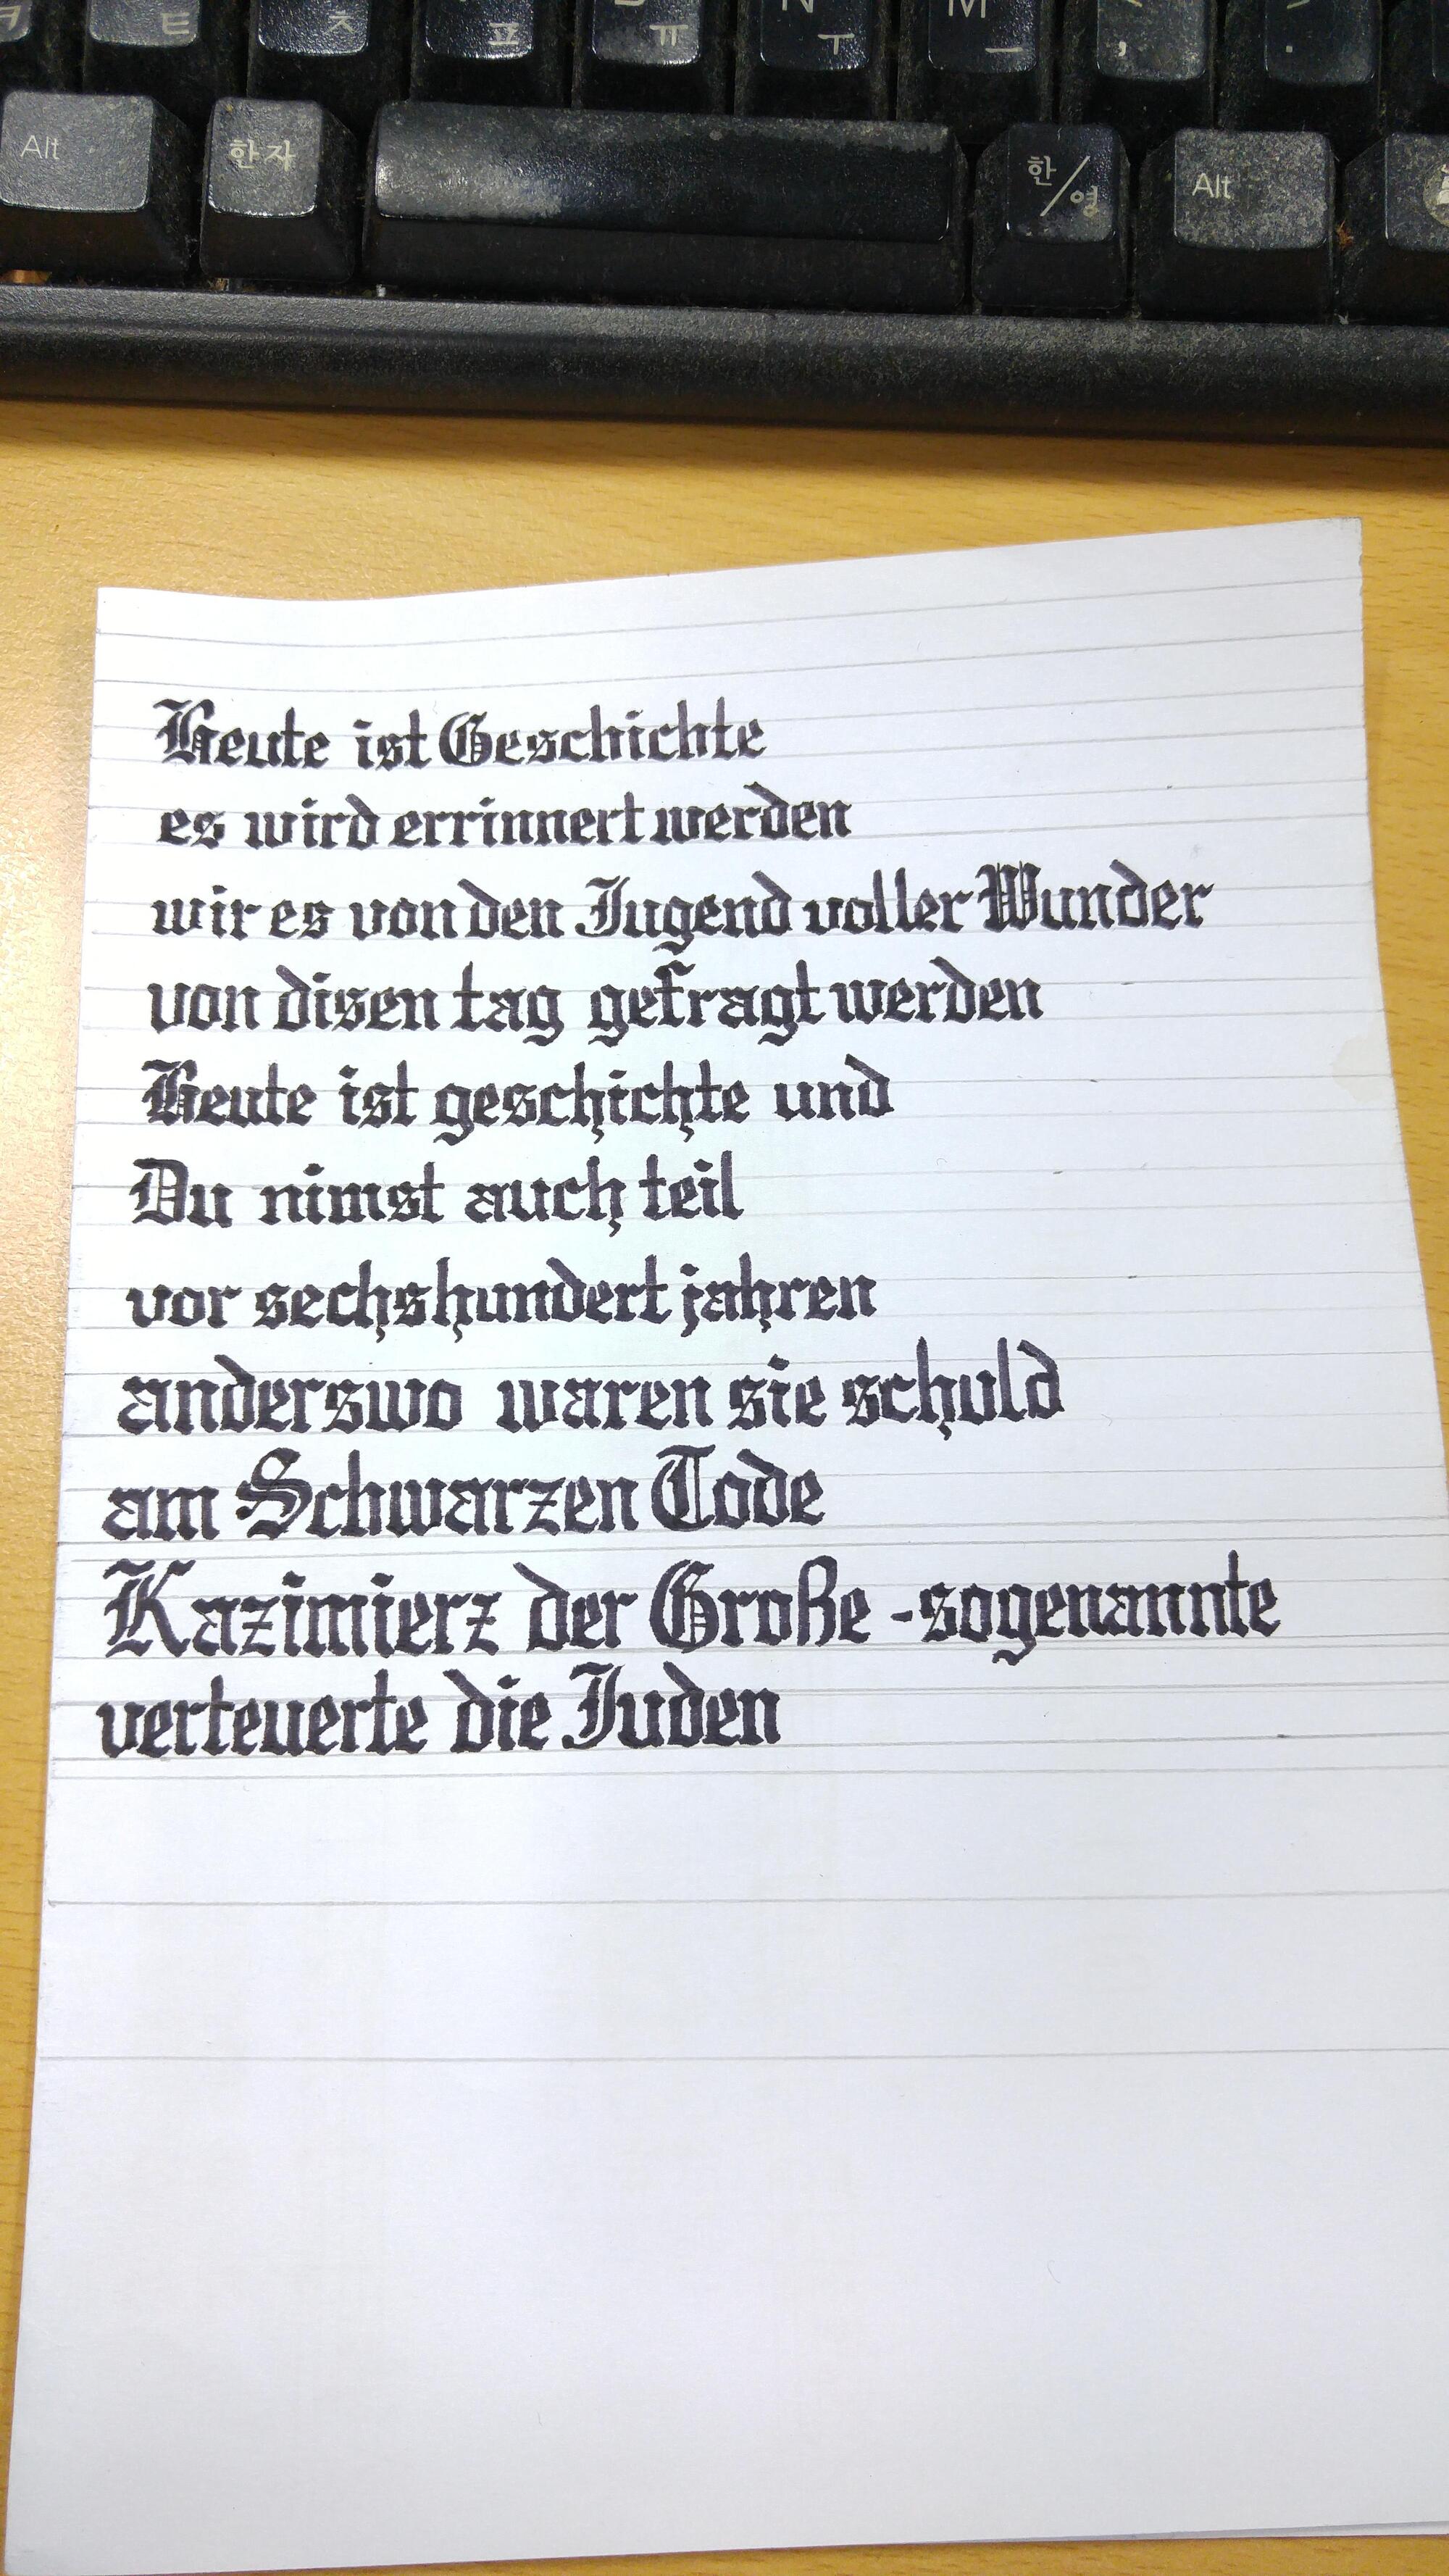 ㅋ ㅌ ㅊ ㅍ ㅠ N ㅜ M ㅡ , .
Alt 한자 한/영 Alt
Heute ist Geschichte
es wird errinnert werden
wir es von den Jugend voller Wunder
von disen tag gefragt werden
Heute ist geschichte und
Du nimst auch teil
vor sechshundert jahren
anderswo waren sie schuld
am Schwarzen Tode
Kazimierz der Große - sogenannte
verteuerte die Juden